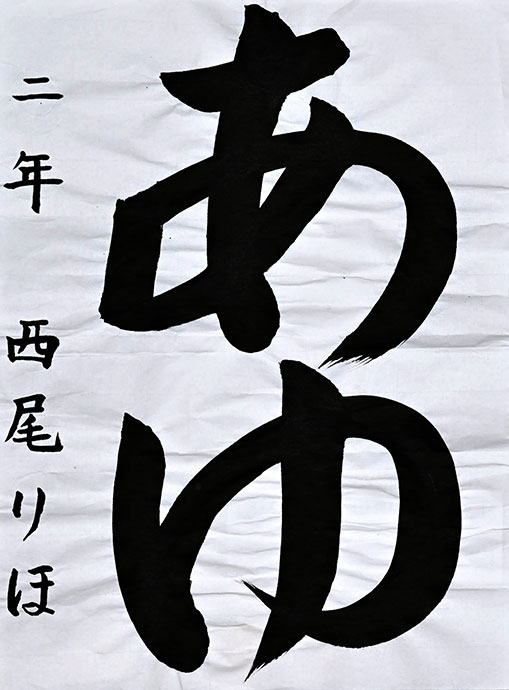 あゆ
二年 西尾りほ